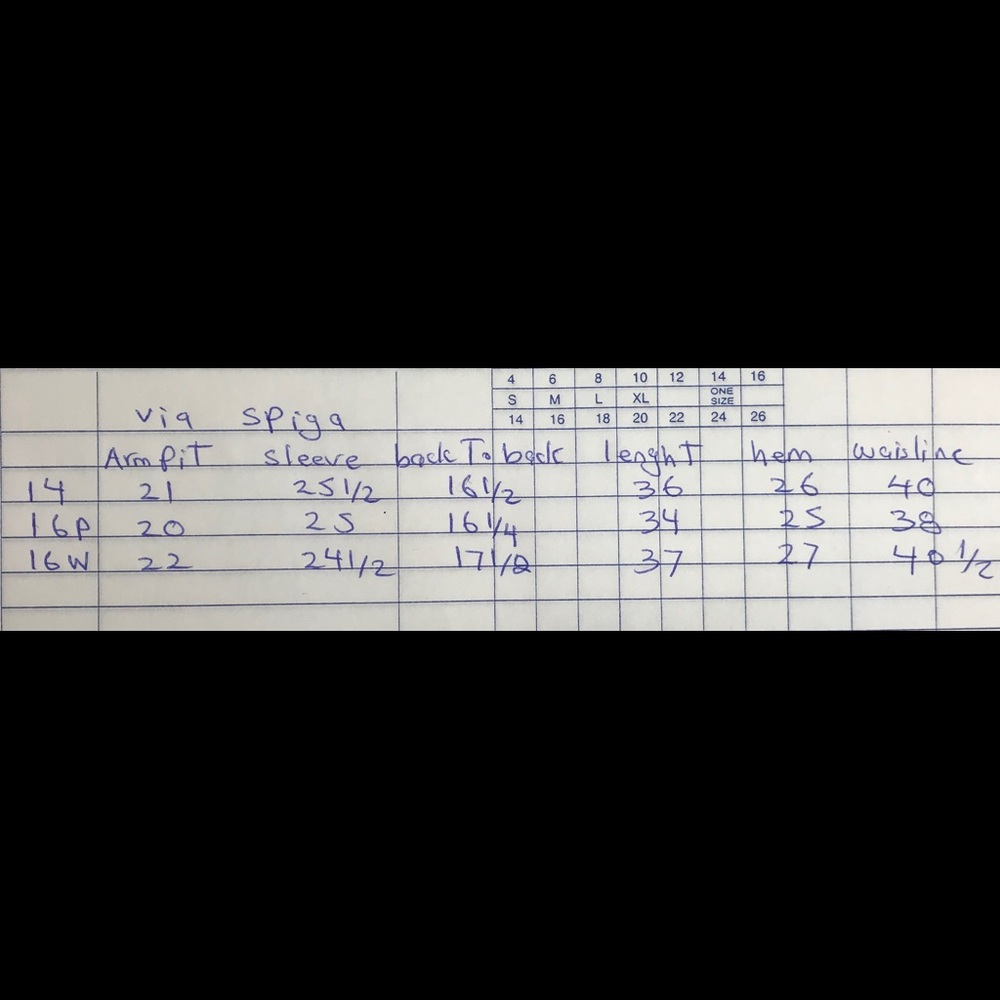 4 6 8 10 12 14 16
S M L XL ONE SIZE
14 16 18 20 22 24 26
Via Spiga
Armpit sleeve back To back lenght hem waisline
14 21 25 1/2 16 1/2 36 26 40
16P 20 25 16 1/4 34 25 38
16W 22 24 1/2 17 1/2 37 27 40 1/2